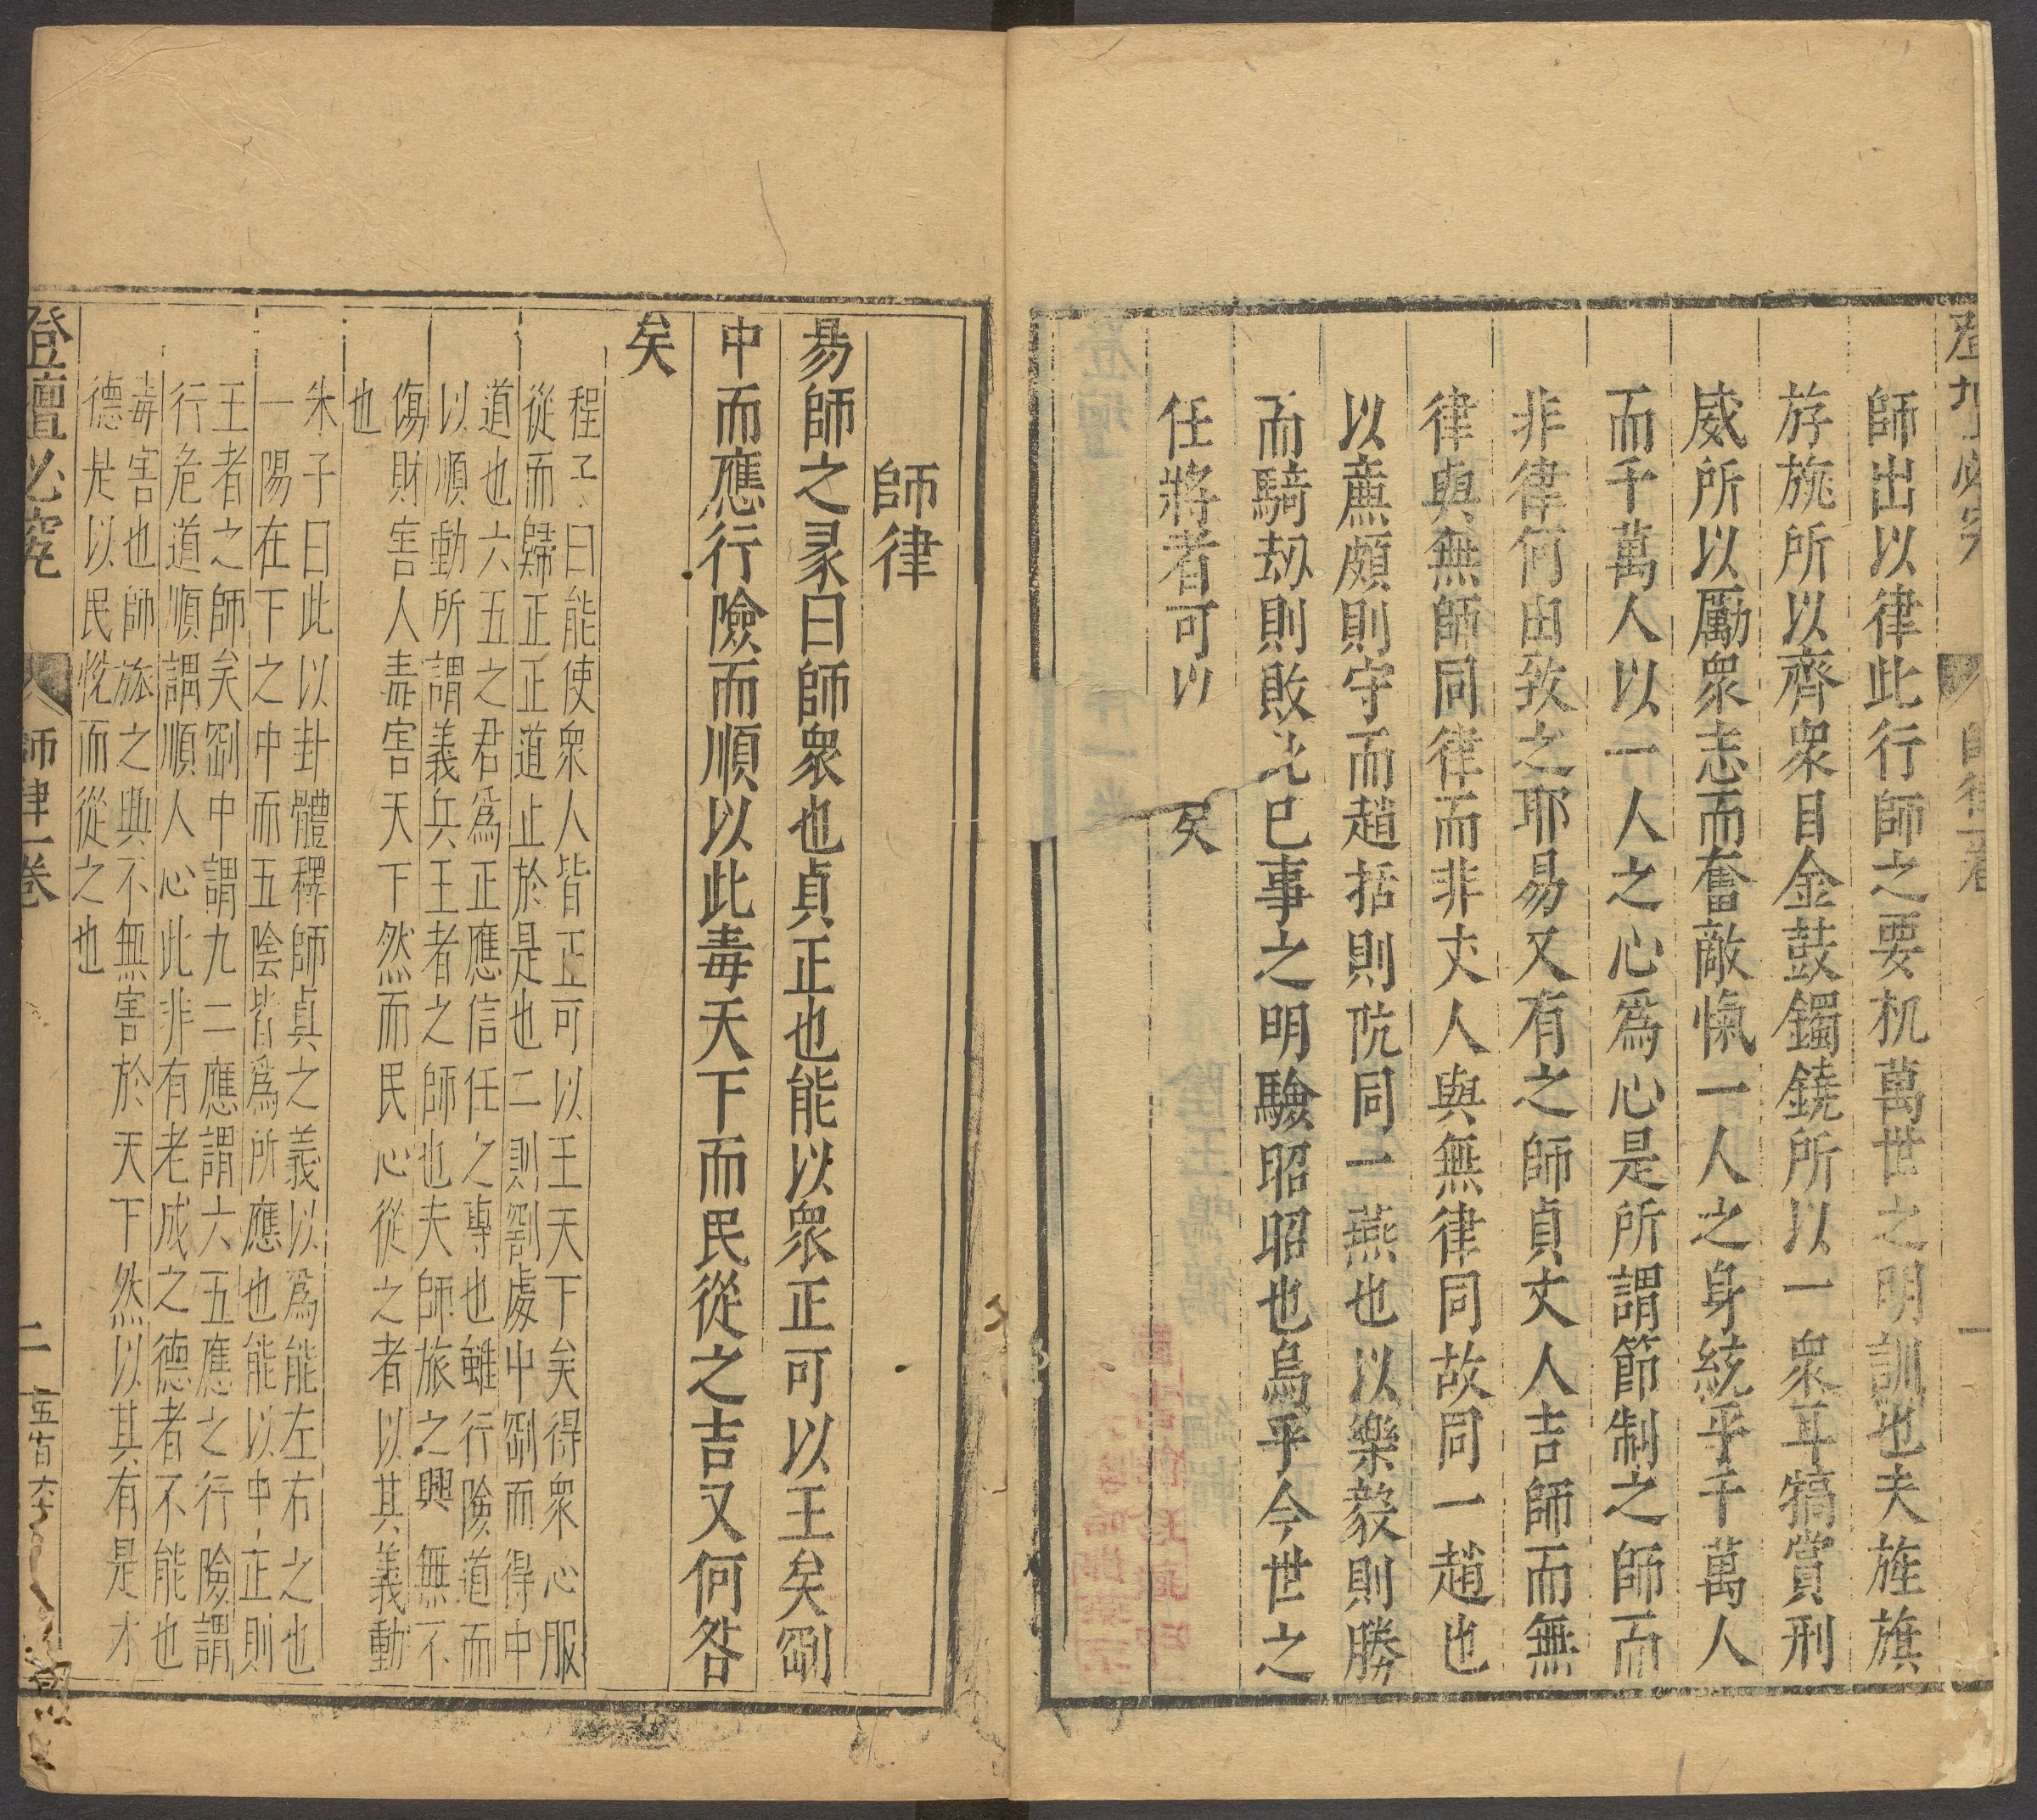 師出以律此行師之要机萬世之明訓也夫旌旗
斿旐所以齊衆目金鼓鐲鐃所以一衆耳犒賞刑
威所以厲衆志而奮敵愾一人之身統乎千萬人
而千萬人以一人之心爲心是所謂節制之師而
非律何由致之耶易又有之師貞丈人吉師而無
律與無師同律而非丈人與無律同故同一趙也
以廉頗則守而趙括則阬同一燕也以樂毅則勝
而騎刼則敗此已事之明驗昭昭也烏乎今世之
任將者可以
矣
師律
易師之彖曰師衆也貞正也能以衆正可以王矣剛
中而應行險而順以此毒天下而民從之吉又何咎
矣
程子曰能使衆人皆正可以王天下矣得衆心服
從而歸正正正道止於是也二則剛處中剛而得中
道也六五之君爲正應信任之專也雖行險道而
以順動所謂義兵王者之師也夫師旅之興無不
傷財害人毒害天下然而民心從之者以其義動
也
朱子曰此以卦體釋師貞之義以爲能左右之也
一陽在下之中而五陰皆爲所應也能以中正則
王者之師矣剛中謂九二應謂六五應之行險謂
行危道順謂順人心此非有老成之德者不能也
毒害也師旅之興不無害於天下然以其有是才
德是以民悅而從之也
登壇必究 師律一卷 二 五百六十